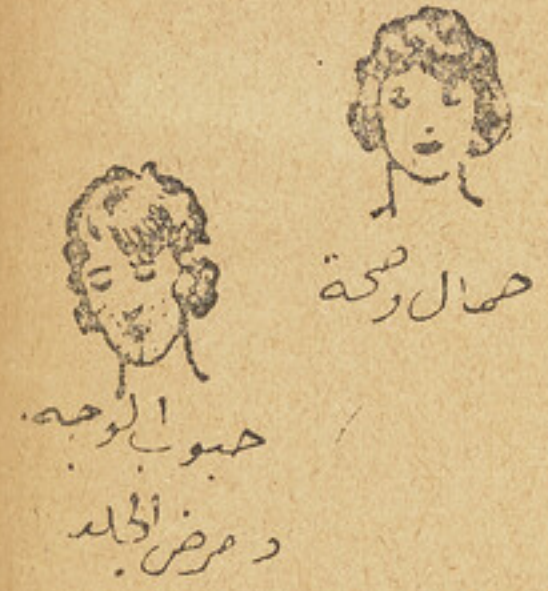 جمال وصحة
حبوب الوجه
ومرض الجلد